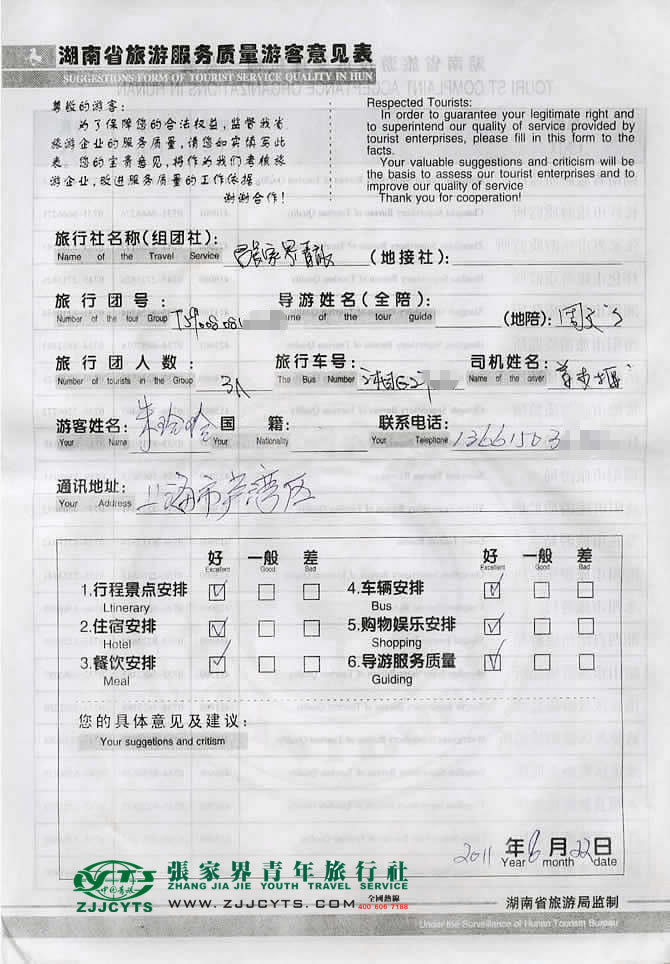 湖南省旅游服务质量游客意见表
SUGGESTIONS FORM OF TOURIST SERVICE QUALITY IN HUN
尊敬的游客：
为了保障您的合法权益，监督我省
旅游企业的服务质量，请您如实填写此
表。您的宝贵意见，将作为我们考核旅
游企业，改进服务质量的工作依据。
谢谢合作！
Respected Tourists:
In order to guarantee your legitimate right and
to superintend our quality of service provided by
tourist enterprises, please fill in this form to the
facts.
Your valuable suggestions and criticism will be
the basis to assess our tourist enterprises and to
improve our quality of service
Thank you for cooperation!
旅行社名称(组团社)： 张家界青旅 (地接社)：
Name of the Travel Service
旅行团号： 导游姓名(全陪)： (地陪)：
Number of the tour Group me of the tour guide
旅行团人数： 3人 旅行车号： 司机姓名：
Number of tourists in the Group The Bus Number Name of the driver
游客姓名： 国籍： 联系电话： 13661503
Your Name Your Nationality Your Telephone
通讯地址： 上海市芦湾区
Your Address
好 一般 差 好 一般 差
Excellent Good Bad Excellent Good Bad
1.行程景点安排 4.车辆安排
Ltinerary Bus
2.住宿安排 5.购物娱乐安排
Hotel Shopping
3.餐饮安排 6.导游服务质量
Meal Guiding
您的具体意见及建议：
Your suggetions and critism
2011 年 8 月 22 日
Year month date
張家界青年旅行社
ZHANG JIA JIE YOUTH TRAVEL SERVICE
ZJJCYTS
WWW.ZJJCYTS.COM 全國熱線
400 606 7188
湖南省旅游局监制
Under the Surveillance of Hunan Tourism Bureau